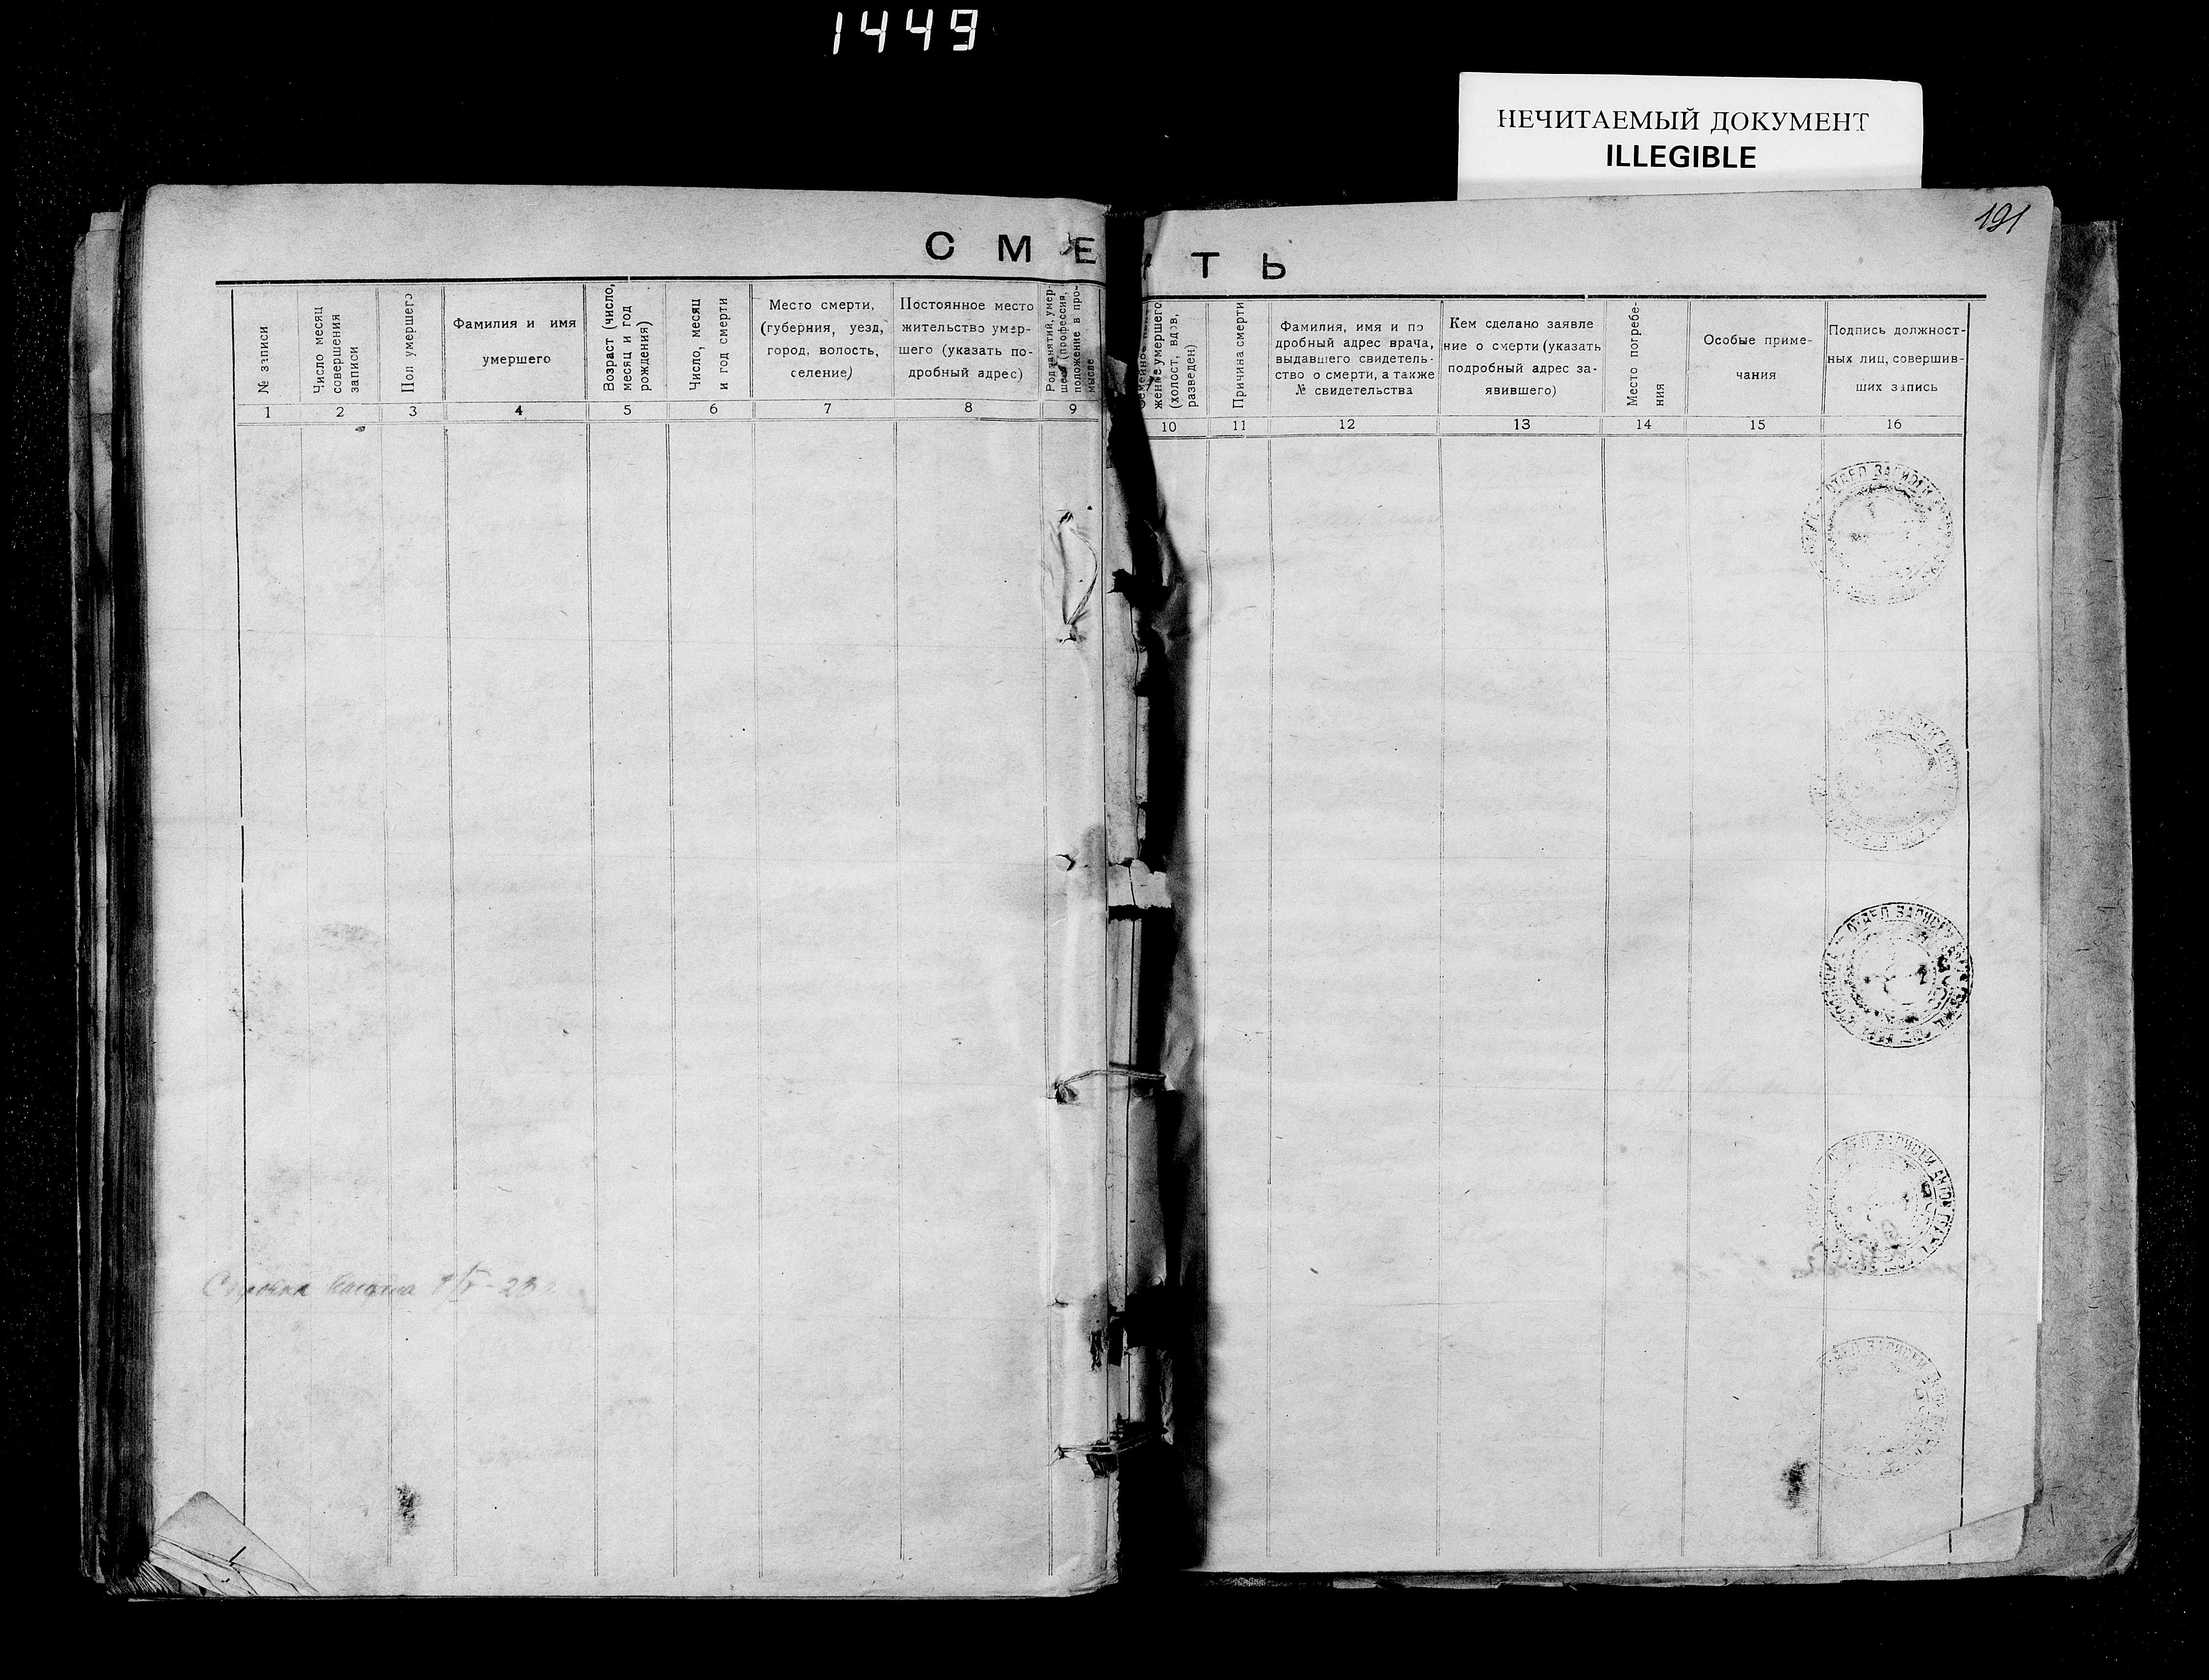 1449
НЕЧИТАЕМЫЙ ДОКУМЕНТ
ILLEGIBLE
191
СМЕ ТЬ
№ записи
Число месяц
совершения
записи
Пол умершего
Фамилия и имя
умершего
Возраст (число,
месяц и год
рождения)
Число, месяц
и год смерти
Место смерти,
(губерния, уезд,
город, волость,
селение)
Постоянное место
жительство умер-
шего (указать по-
дробный адрес)
Род занятий, умер-
шего (профессия,
положение в про-
мысле
жение умершего
(холост, вдов,
разведен)
Причина смерти
Фамилия, имя и по
дробный адрес врача,
выдавшего свидетель-
ство о смерти, а также
№ свидетельства
Кем сделано заявле
ние о смерти (указать
подробный адрес за-
явившего)
Место погребе-
ния
Особые приме-
чания
Подпись должност-
ных лиц, совершив-
ших запись
1 2 3 4 5 6 7 8 9 10 11 12 13 14 15 16
ОТДЕЛ ЗАПИСИ
ОТДЕЛ ЗАПИСИ
ЗАПИСИ
ЗАПИСИ